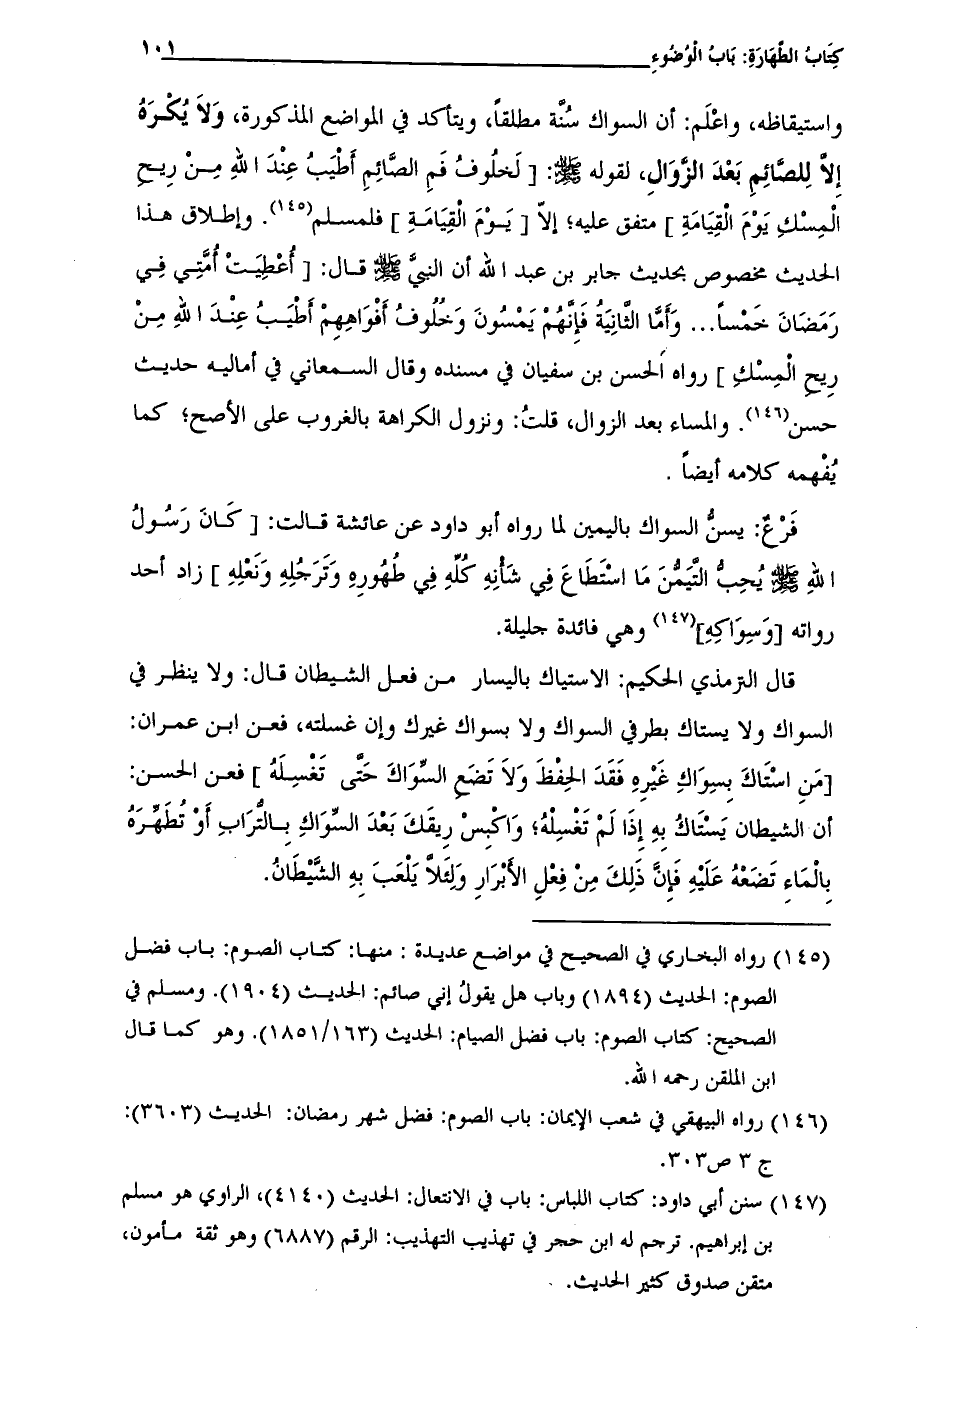 كِتَابُ الطَّهَارَةِ: بَابُ الْوُضُوءِ ١٠١
واستيقاظه، واعْلَم: أن السواك سُنَّة مطلقاً، ويتأكد في المواضع المذكورة، وَلاَ يُكْرَهُ
إِلاَّ لِلصَّائِمِ بَعْدَ الزَّوَالِ، لقوله ﷺ: [ لَخُلُوفُ فَمِ الصَّائِمِ أَطْيَبُ عِنْدَ اللهِ مِنْ رِيحِ
الْمِسْكِ يَوْمَ الْقِيَامَةِ ] متفق عليه؛ إلاّ [ يَوْمَ الْقِيَامَةِ ] فلمسلم(١٤٥). وإطلاق هذا
الحديث مخصوص بحديث جابر بن عبد الله أن النبيَّ ﷺ قال: [ أُعْطِيَتْ أُمَّتِي فِي
رَمَضَانَ خَمْساً... وَأَمَّا الثَّانِيَةُ فَإِنَّهُمْ يَمْسُونَ وَخُلُوفُ أَفْوَاهِهِمْ أَطْيَبُ عِنْدَ اللهِ مِنْ
رِيحِ الْمِسْكِ ] رواه الحسن بن سفيان في مسنده وقال السمعاني في أماليه حديث
حسن(١٤٦). والمساء بعد الزوال، قلتُ: ونزول الكراهة بالغروب على الأصح؛ كما
يُفْهمه كلامه أيضاً .
فَرْعٌ: يسنُّ السواك باليمين لما رواه أبو داود عن عائشة قالت: [ كَانَ رَسُولُ
اللهِ ﷺ يُحِبُّ التَّيَمُّنَ مَا اسْتَطَاعَ فِي شَأْنِهِ كُلِّهِ فِي طُهُورِهِ وَتَرَجُلِهِ وَنَعْلِهِ ] زاد أحد
رواته [وَسِوَاكِهِ](١٤٧) وهي فائدة جليلة.
قال الترمذي الحكيم: الاستياك باليسار من فعل الشيطان قال: ولا ينظر في
السواك ولا يستاك بطرفي السواك ولا بسواك غيرك وإن غسلته، فعن ابن عمران:
[مَنِ اسْتَاكَ بِسِوَاكِ غَيْرِهِ فَقَدَ الحِفْظَ وَلاَ تَضَعِ السِّوَاكَ حَتَّى تَغْسِلَهُ ] فعن الحسن:
أن الشيطان يَسْتَاكُ بِهِ إِذَا لَمْ تَغْسِلْهُ؛ وَاكْبِسْ رِيقَكَ بَعْدَ السِّوَاكِ بِالتُّرَابِ أَوْ تُطَهِّرَهُ
بِالْمَاءِ تَضَعْهُ عَلَيْهِ فَإِنَّ ذَلِكَ مِنْ فِعْلِ الأَبْرَارِ وَلِئَلاَّ يَلْعَبَ بِهِ الشَّيْطَانُ.
(١٤٥) رواه البخاري في الصحيح في مواضع عديدة : منها: كتاب الصوم: باب فضل
الصوم: الحديث (١٨٩٤) وباب هل يقولُ إني صائم: الحديث (١٩٠٤). ومسلم في
الصحيح: كتاب الصوم: باب فضل الصيام: الحديث (١٨٥١/١٦٣). وهو كما قال
ابن الملقن رحمه الله.
(١٤٦) رواه البيهقي في شعب الإيمان: باب الصوم: فضل شهر رمضان: الحديث (٣٦٠٣):
ج ٣ ص٣٠٣.
(١٤٧) سنن أبي داود: كتاب اللباس: باب في الانتعال: الحديث (٤١٤٠)، الراوي هو مسلم
بن إبراهيم. ترجم له ابن حجر في تهذيب التهذيب: الرقم (٦٨٨٧) وهو ثقة مأمون،
متقن صدوق كثير الحديث.